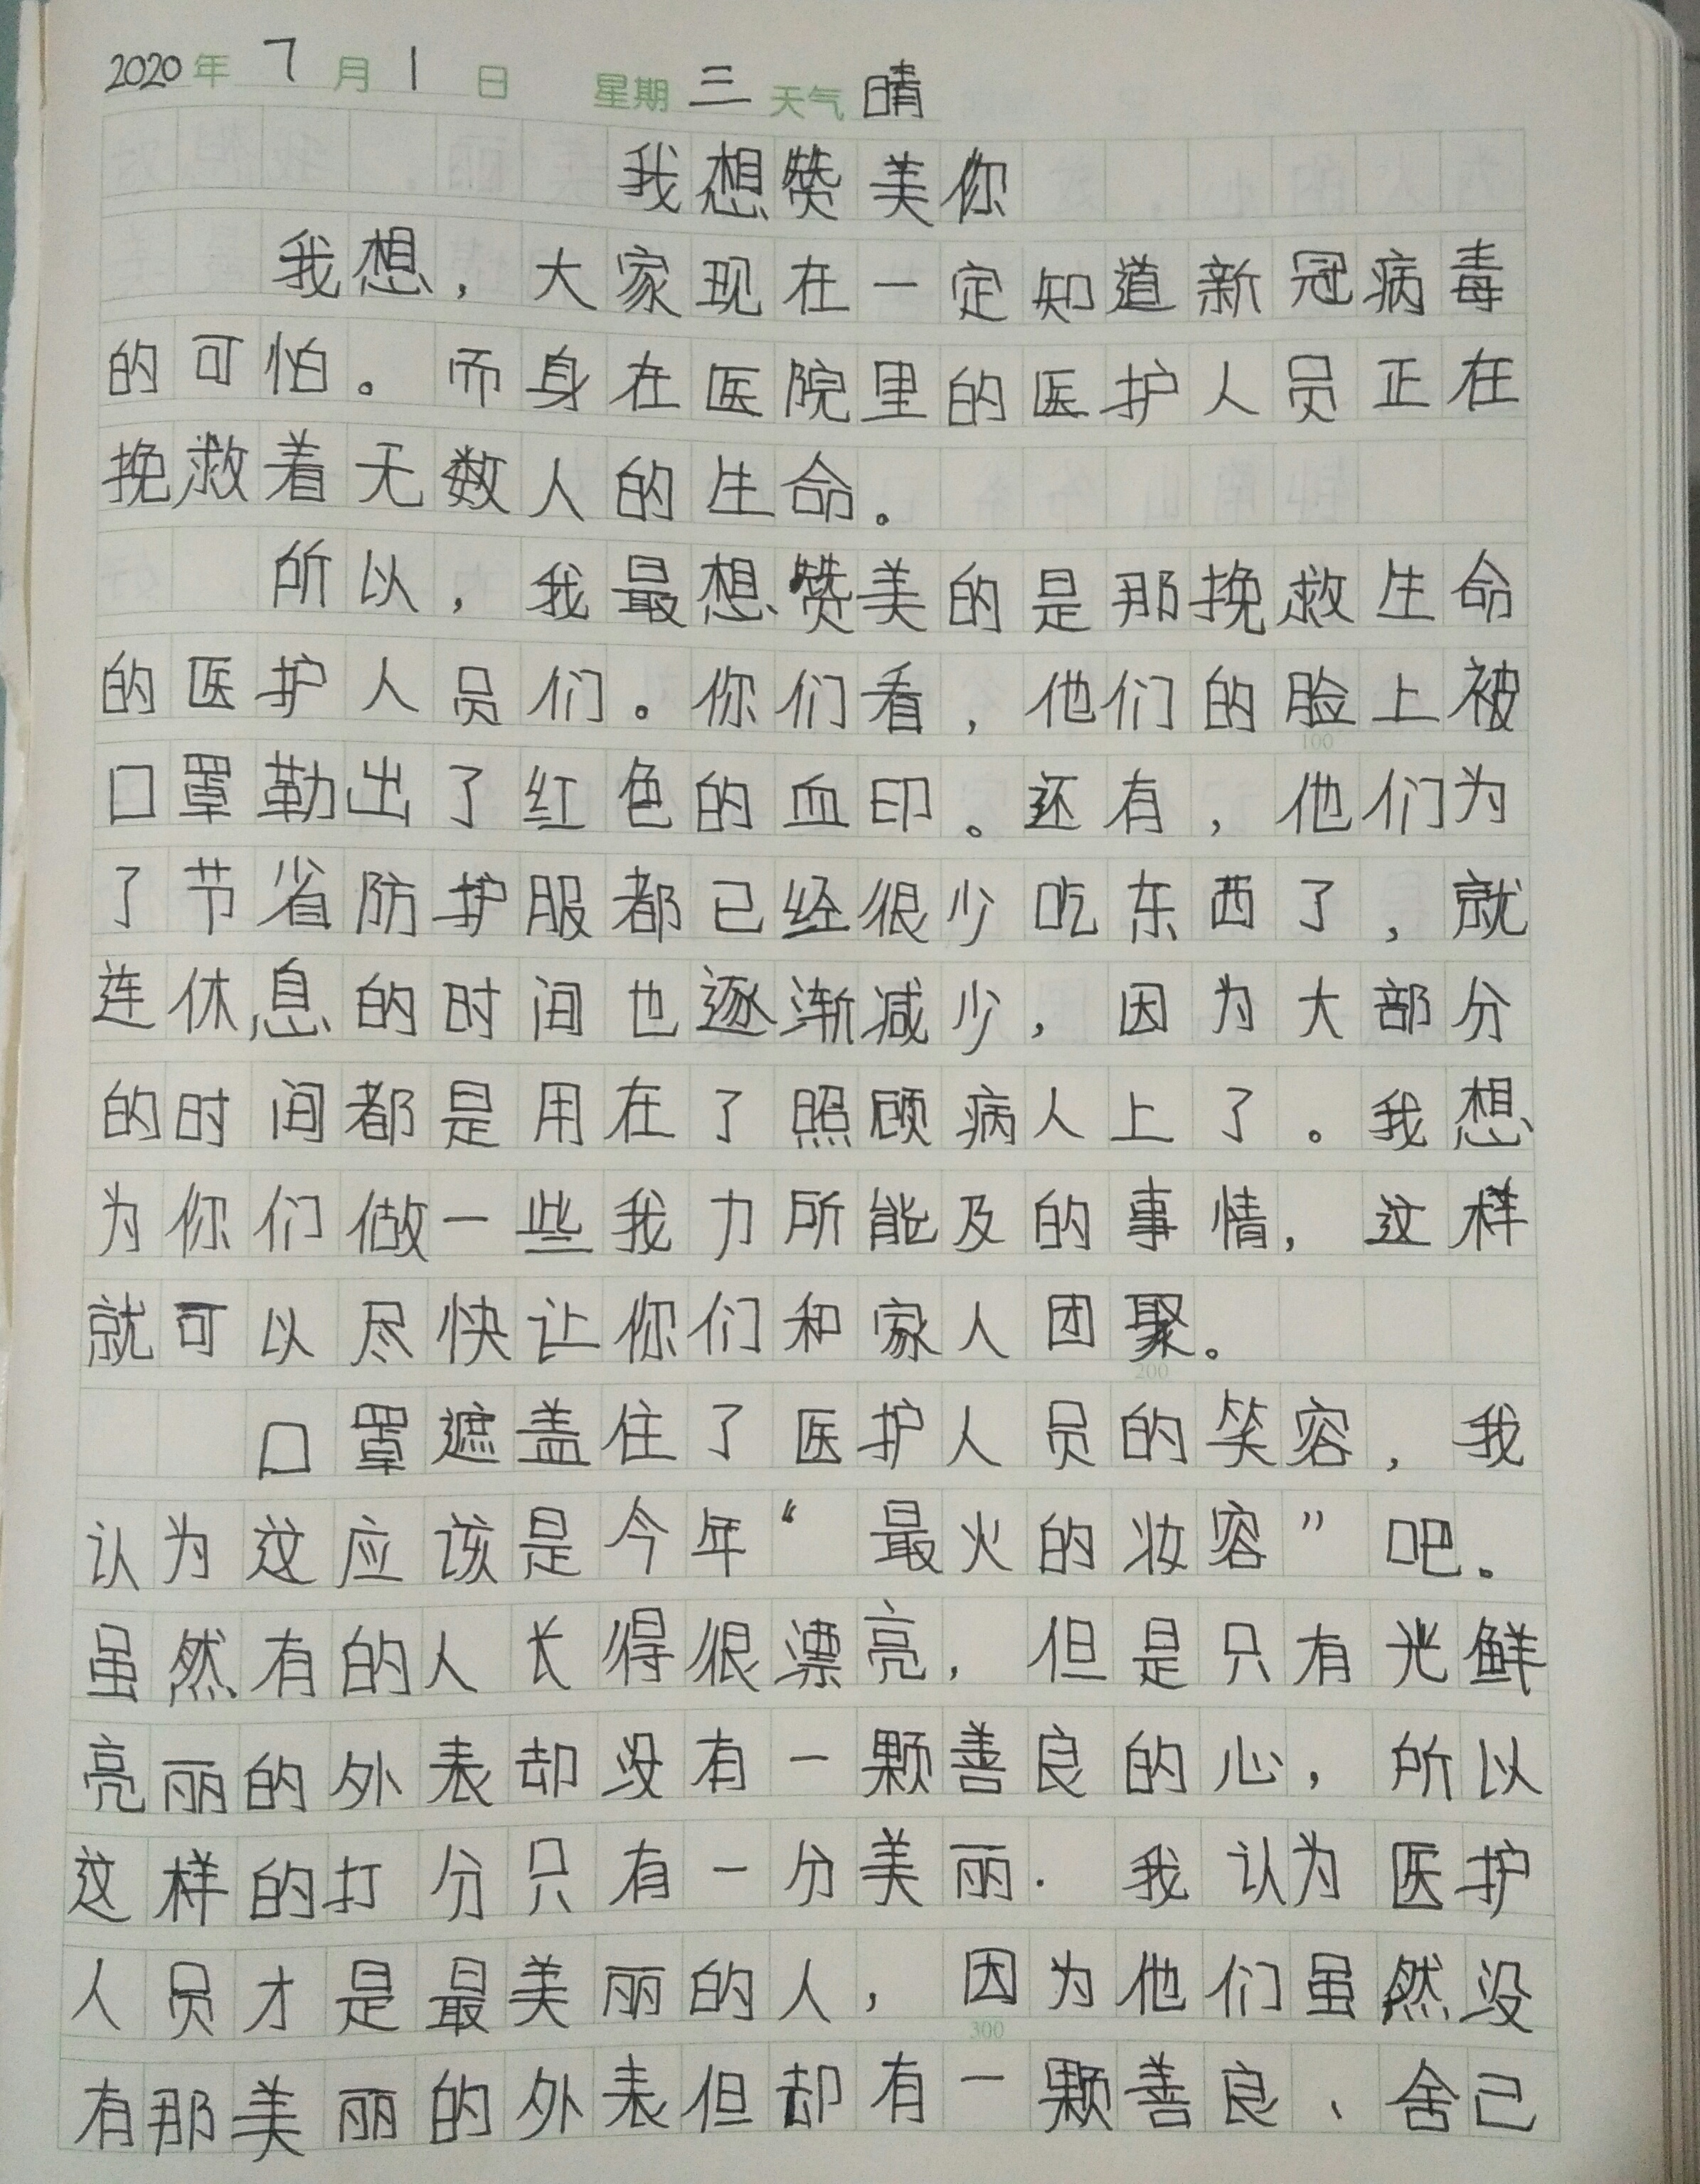 2020年 7月1日 星期三 天气晴
我想赞美你
我想，大家现在一定知道新冠病毒
的可怕。而身在医院里的医护人员正在
挽救着无数人的生命。
所以，我最想赞美的是那挽救生命
的医护人员们。你们看，他们的脸上被
口罩勒出了红色的血印。还有，他们为
了节省防护服都已经很少吃东西了，就
连休息的时间也逐渐减少，因为大部分
100
的时间都是用在了照顾病人上了。我想
为你们做一些我力所能及的事情，这样
就可以尽快让你们和家人团聚。
200
口罩遮盖住了医护人员的笑容，我
认为这应该是今年“最火的妆容”吧。
虽然有的人长得很漂亮，但是只有光鲜
亮丽的外表却没有一颗善良的心，所以
这样的打分只有一分美丽.我认为医护
人员才是最美丽的人，因为他们虽然没
300
有那美丽的外表但却有一颗善良、舍己